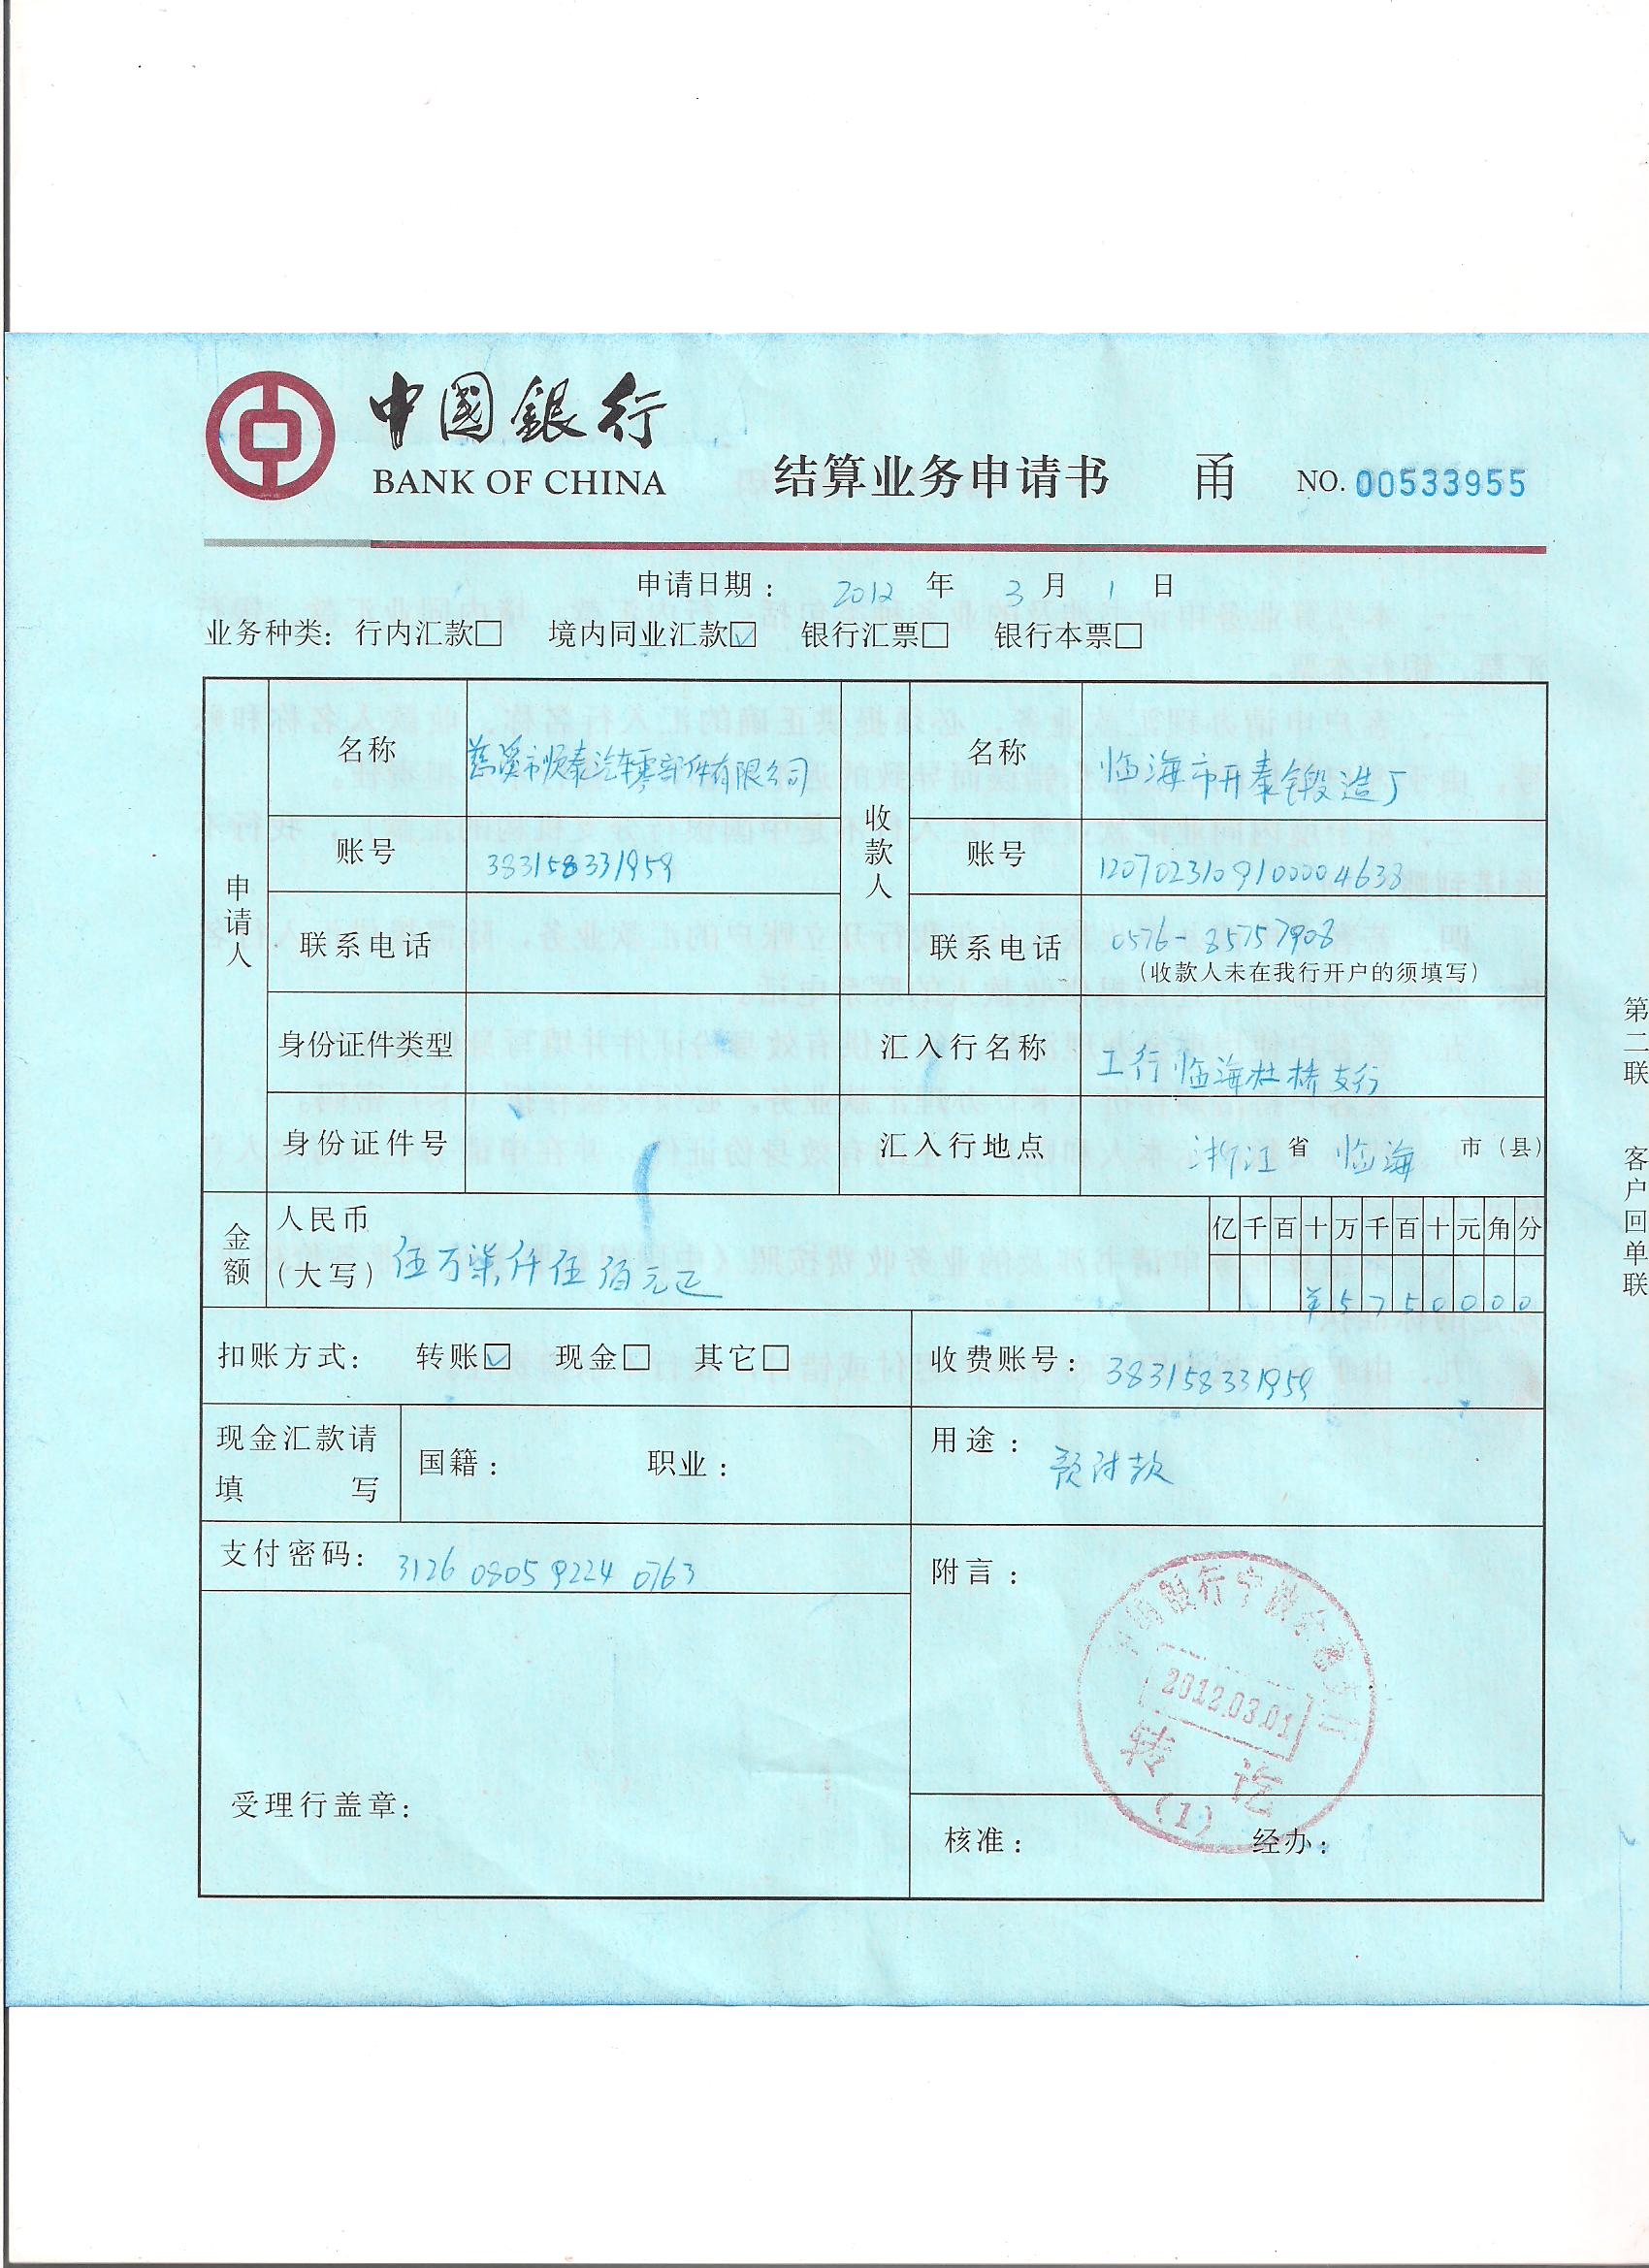 中國銀行
BANK OF CHINA
结算业务申请书 甬 NO. 00533955
申请日期： 2012 年 3 月 1 日
业务种类：行内汇款□ 境内同业汇款☑ 银行汇票□ 银行本票□
申请人
名称 慈溪市顺泰汽车零部件有限公司
收款人
名称 临海市开泰锻造厂
账号 383158331959
账号 1207023109100004638
联系电话
联系电话 0576-85757908
（收款人未在我行开户的须填写）
身份证件类型
汇入行名称 工行临海杜桥支行
身份证件号
汇入行地点 浙江 省 临海 市（县）
金额
人民币
（大写）伍万柒仟伍佰元正
亿千百十万千百十元角分
¥5750000
扣账方式： 转账☑ 现金□ 其它□
收费账号：383158331959
现金汇款请
填 写
国籍： 职业：
用途： 预付款
支付密码： 3126 0805 9224 0763
附言：
中国银行宁波
2012.03.01
转讫
(1)
受理行盖章：
核准： 经办：
第二联 客户回单联